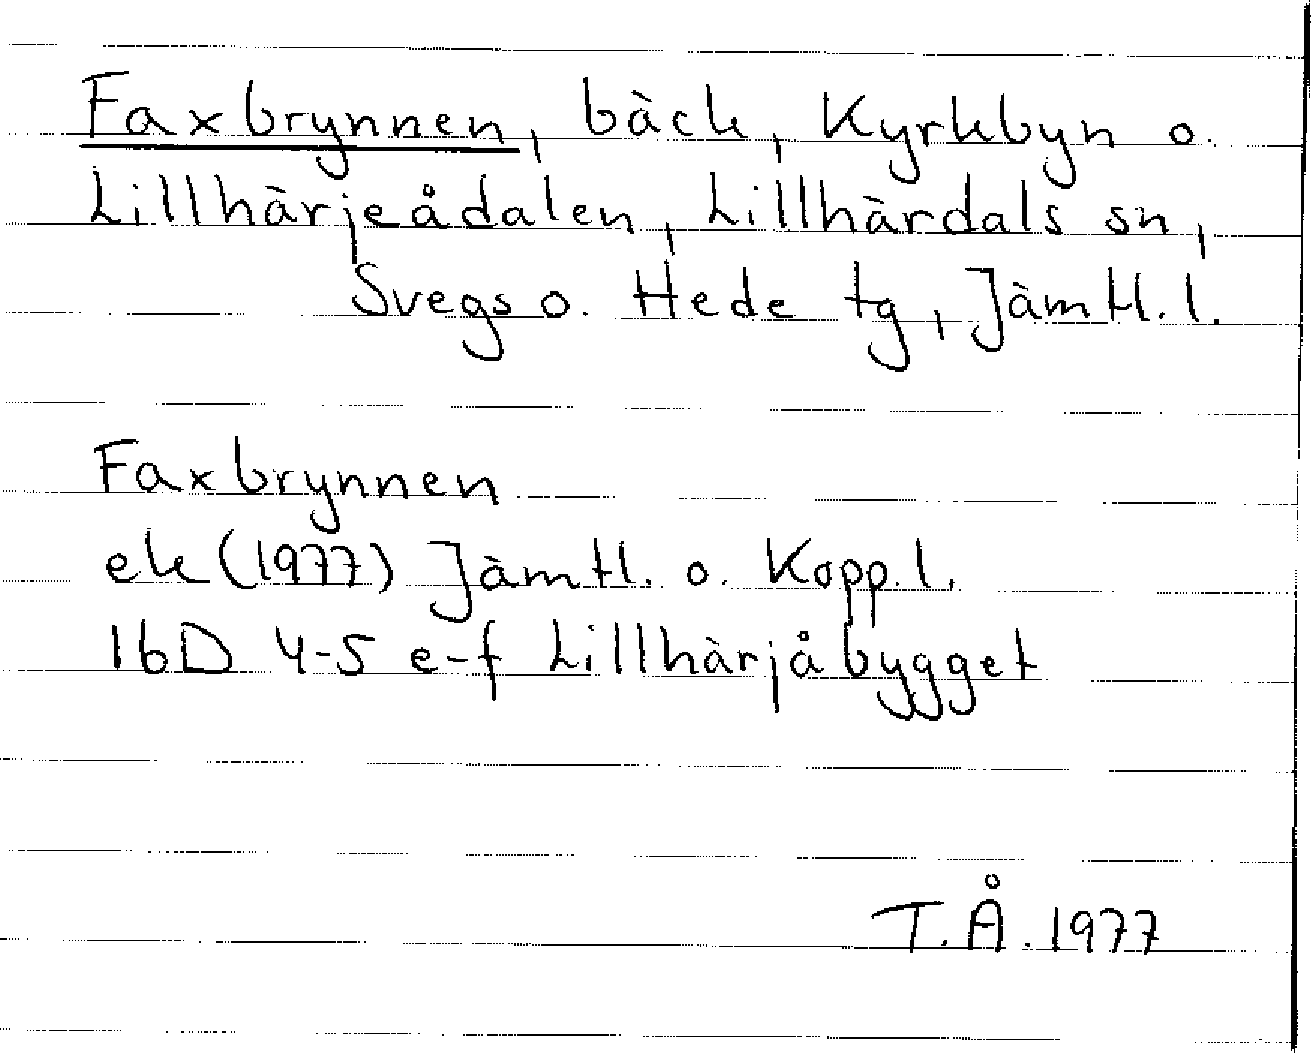 Faxbrynnen, bäck, Kyrkbyn o.
Lillhärjeådalen, Lillhärdals sn,
Svegs o. Hede tg, Jämtl. l.
Faxbrynnen
ek (1977) Jämtl. o. Kopp. l.
16D 4-5 e-f Lillhärjåbygget
T.Å. 1977